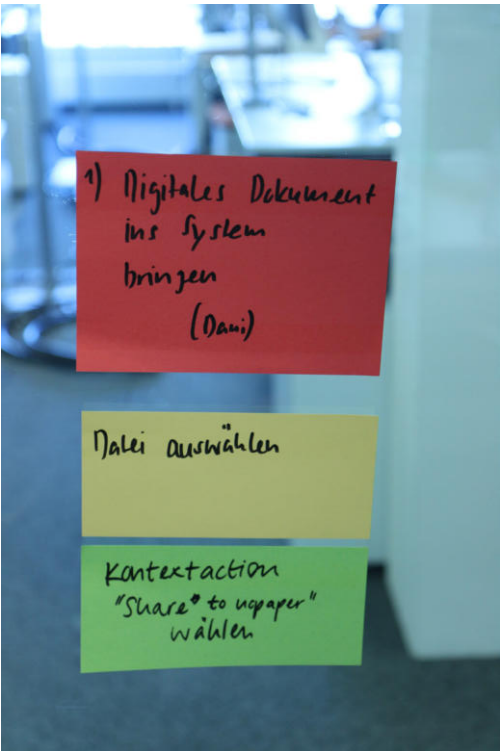 1) Digitales Dokument
ins System
bringen
(Dani)
Datei auswählen
Kontextaction
"Share" to nopaper"
wählen